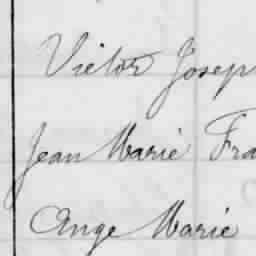 Victor Josep
Jean Marie Fra
Ange Marie